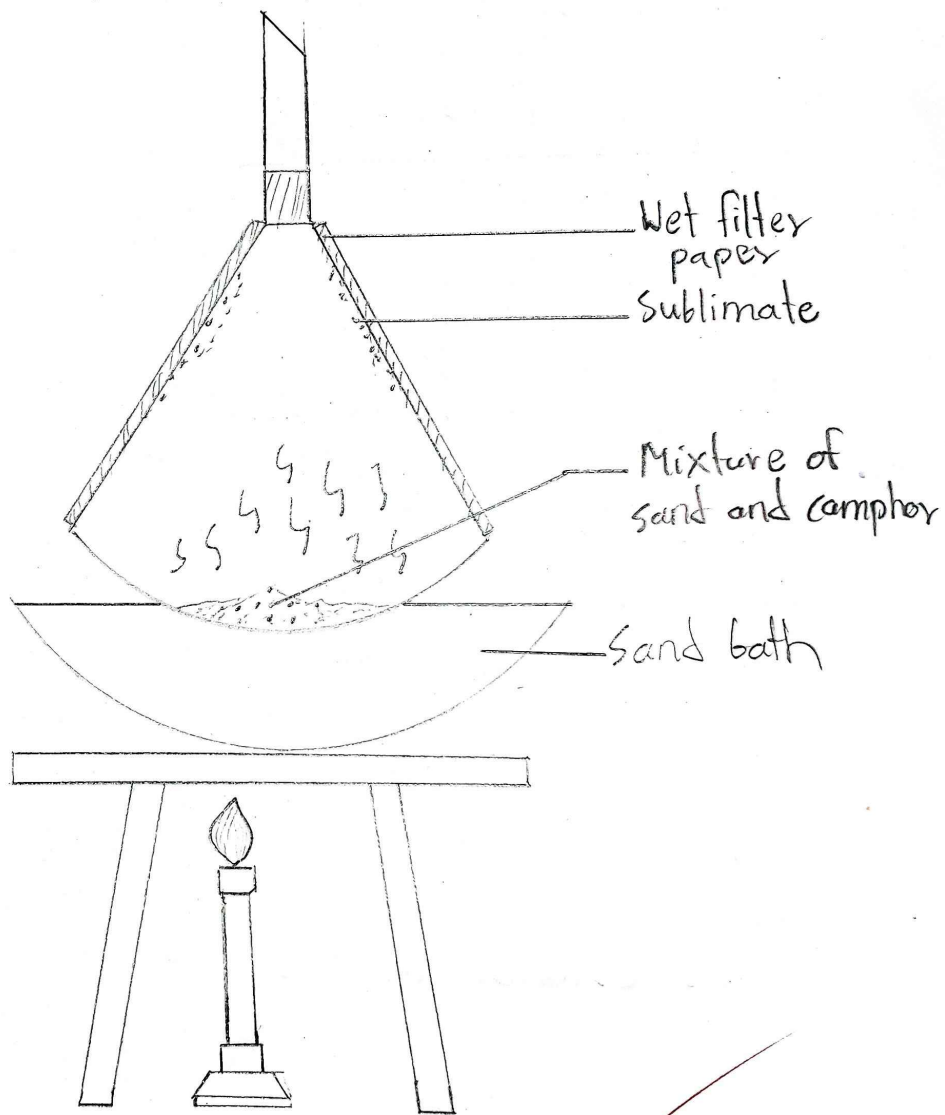 Wet filter
paper
Sublimate
Mixture of
sand and camphor
Sand bath